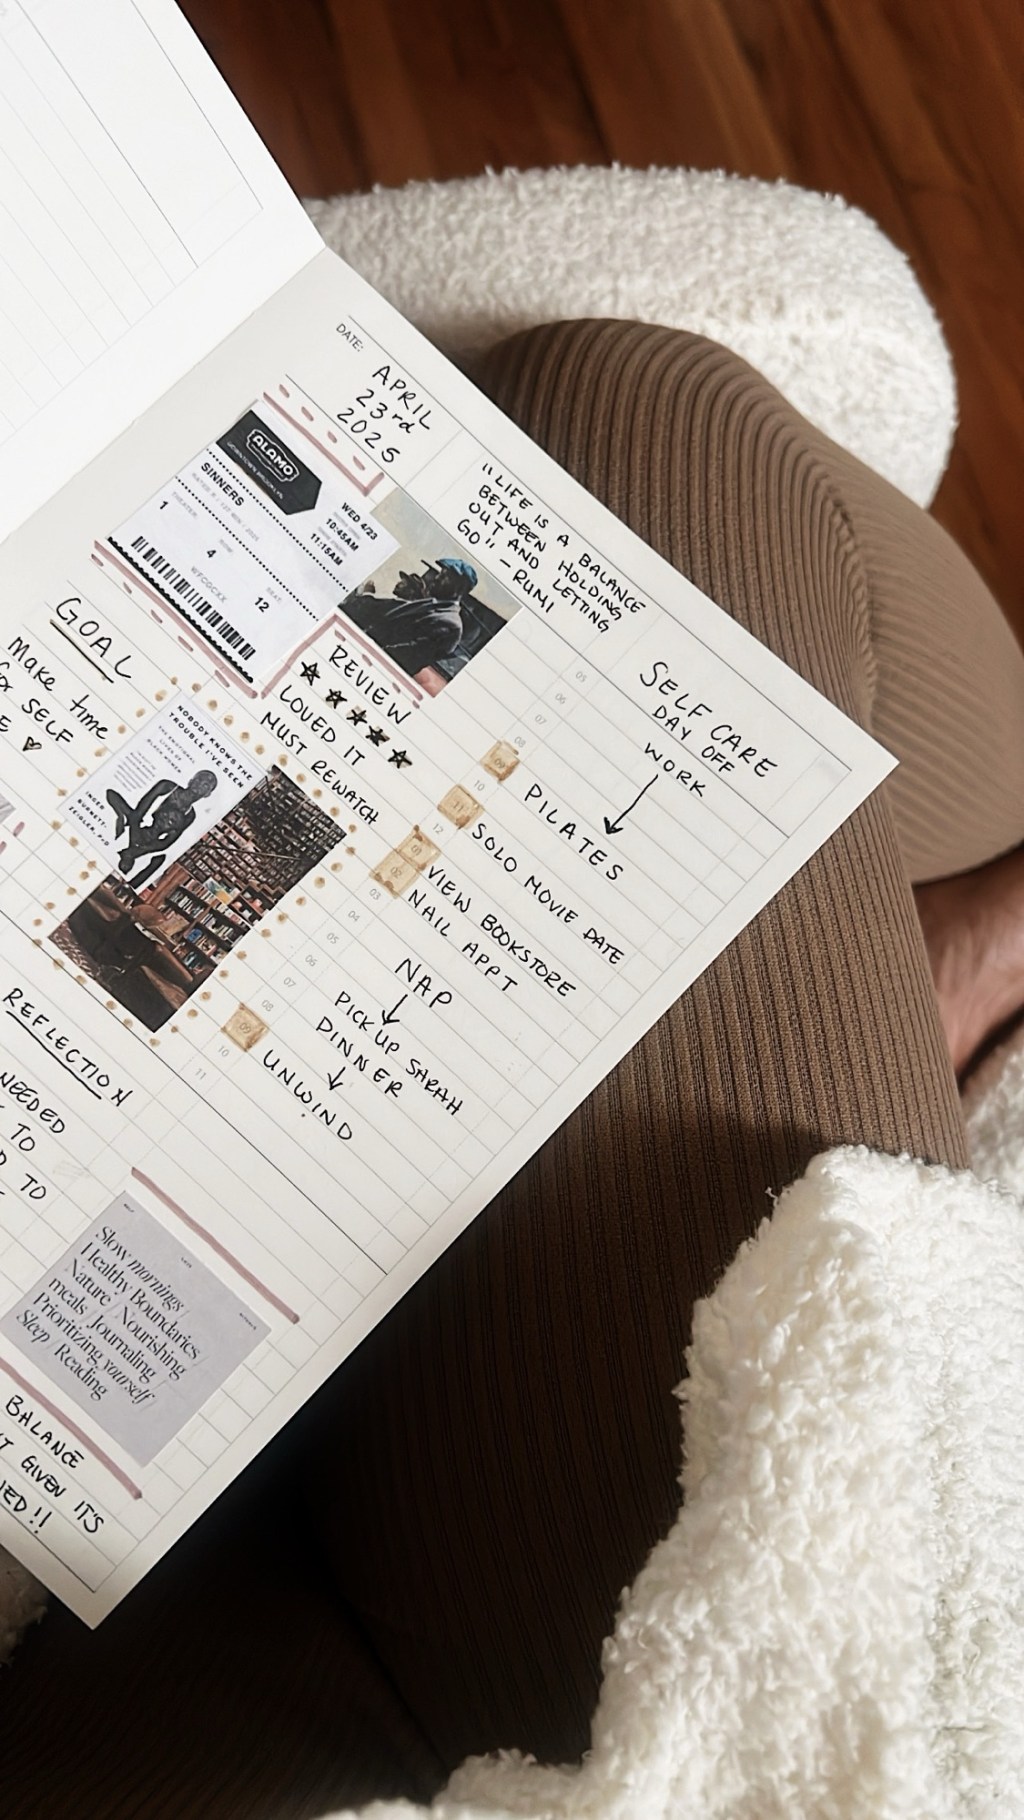 DATE:
APRIL
23rd
2025
"LIFE IS A BALANCE
BETWEEN HOLDING
OUT AND LETTING
GO" – RUMI
ALAMO
DOWNTOWN BROOKLYN
SINNERS
WED 4/23
10:45AM
11:15AM
THEATER
1
ROW
4
SEAT
12
WFCGCXX
REVIEW
★★★★★
LOVED IT
MUST REWATCH
GOAL
Make time
SELF
♡
NOBODY KNOWS THE
TROUBLE I'VE SEEN
THE EMOTIONAL
LIVES OF
BLACK WOMEN
INGER
BURNETT-
ZEIGLER, PhD
SELF CARE
DAY OFF
WORK
05
06
07
08
09
PILATES
10
11
SOLO MOVIE DATE
12
01
VIEW BOOKSTORE
02
NAIL APPT
03
04
NAP
05
06
PICK UP SARAH
07
DINNER
08
09
UNWIND
10
11
REFLECTION
NEEDED
TO
TO
Slow mornings /
Healthy Boundaries /
Nature / Nourishing
meals / Journaling /
Prioritizing yourself /
Sleep / Reading
BALANCE
GIVEN IT'S
!!